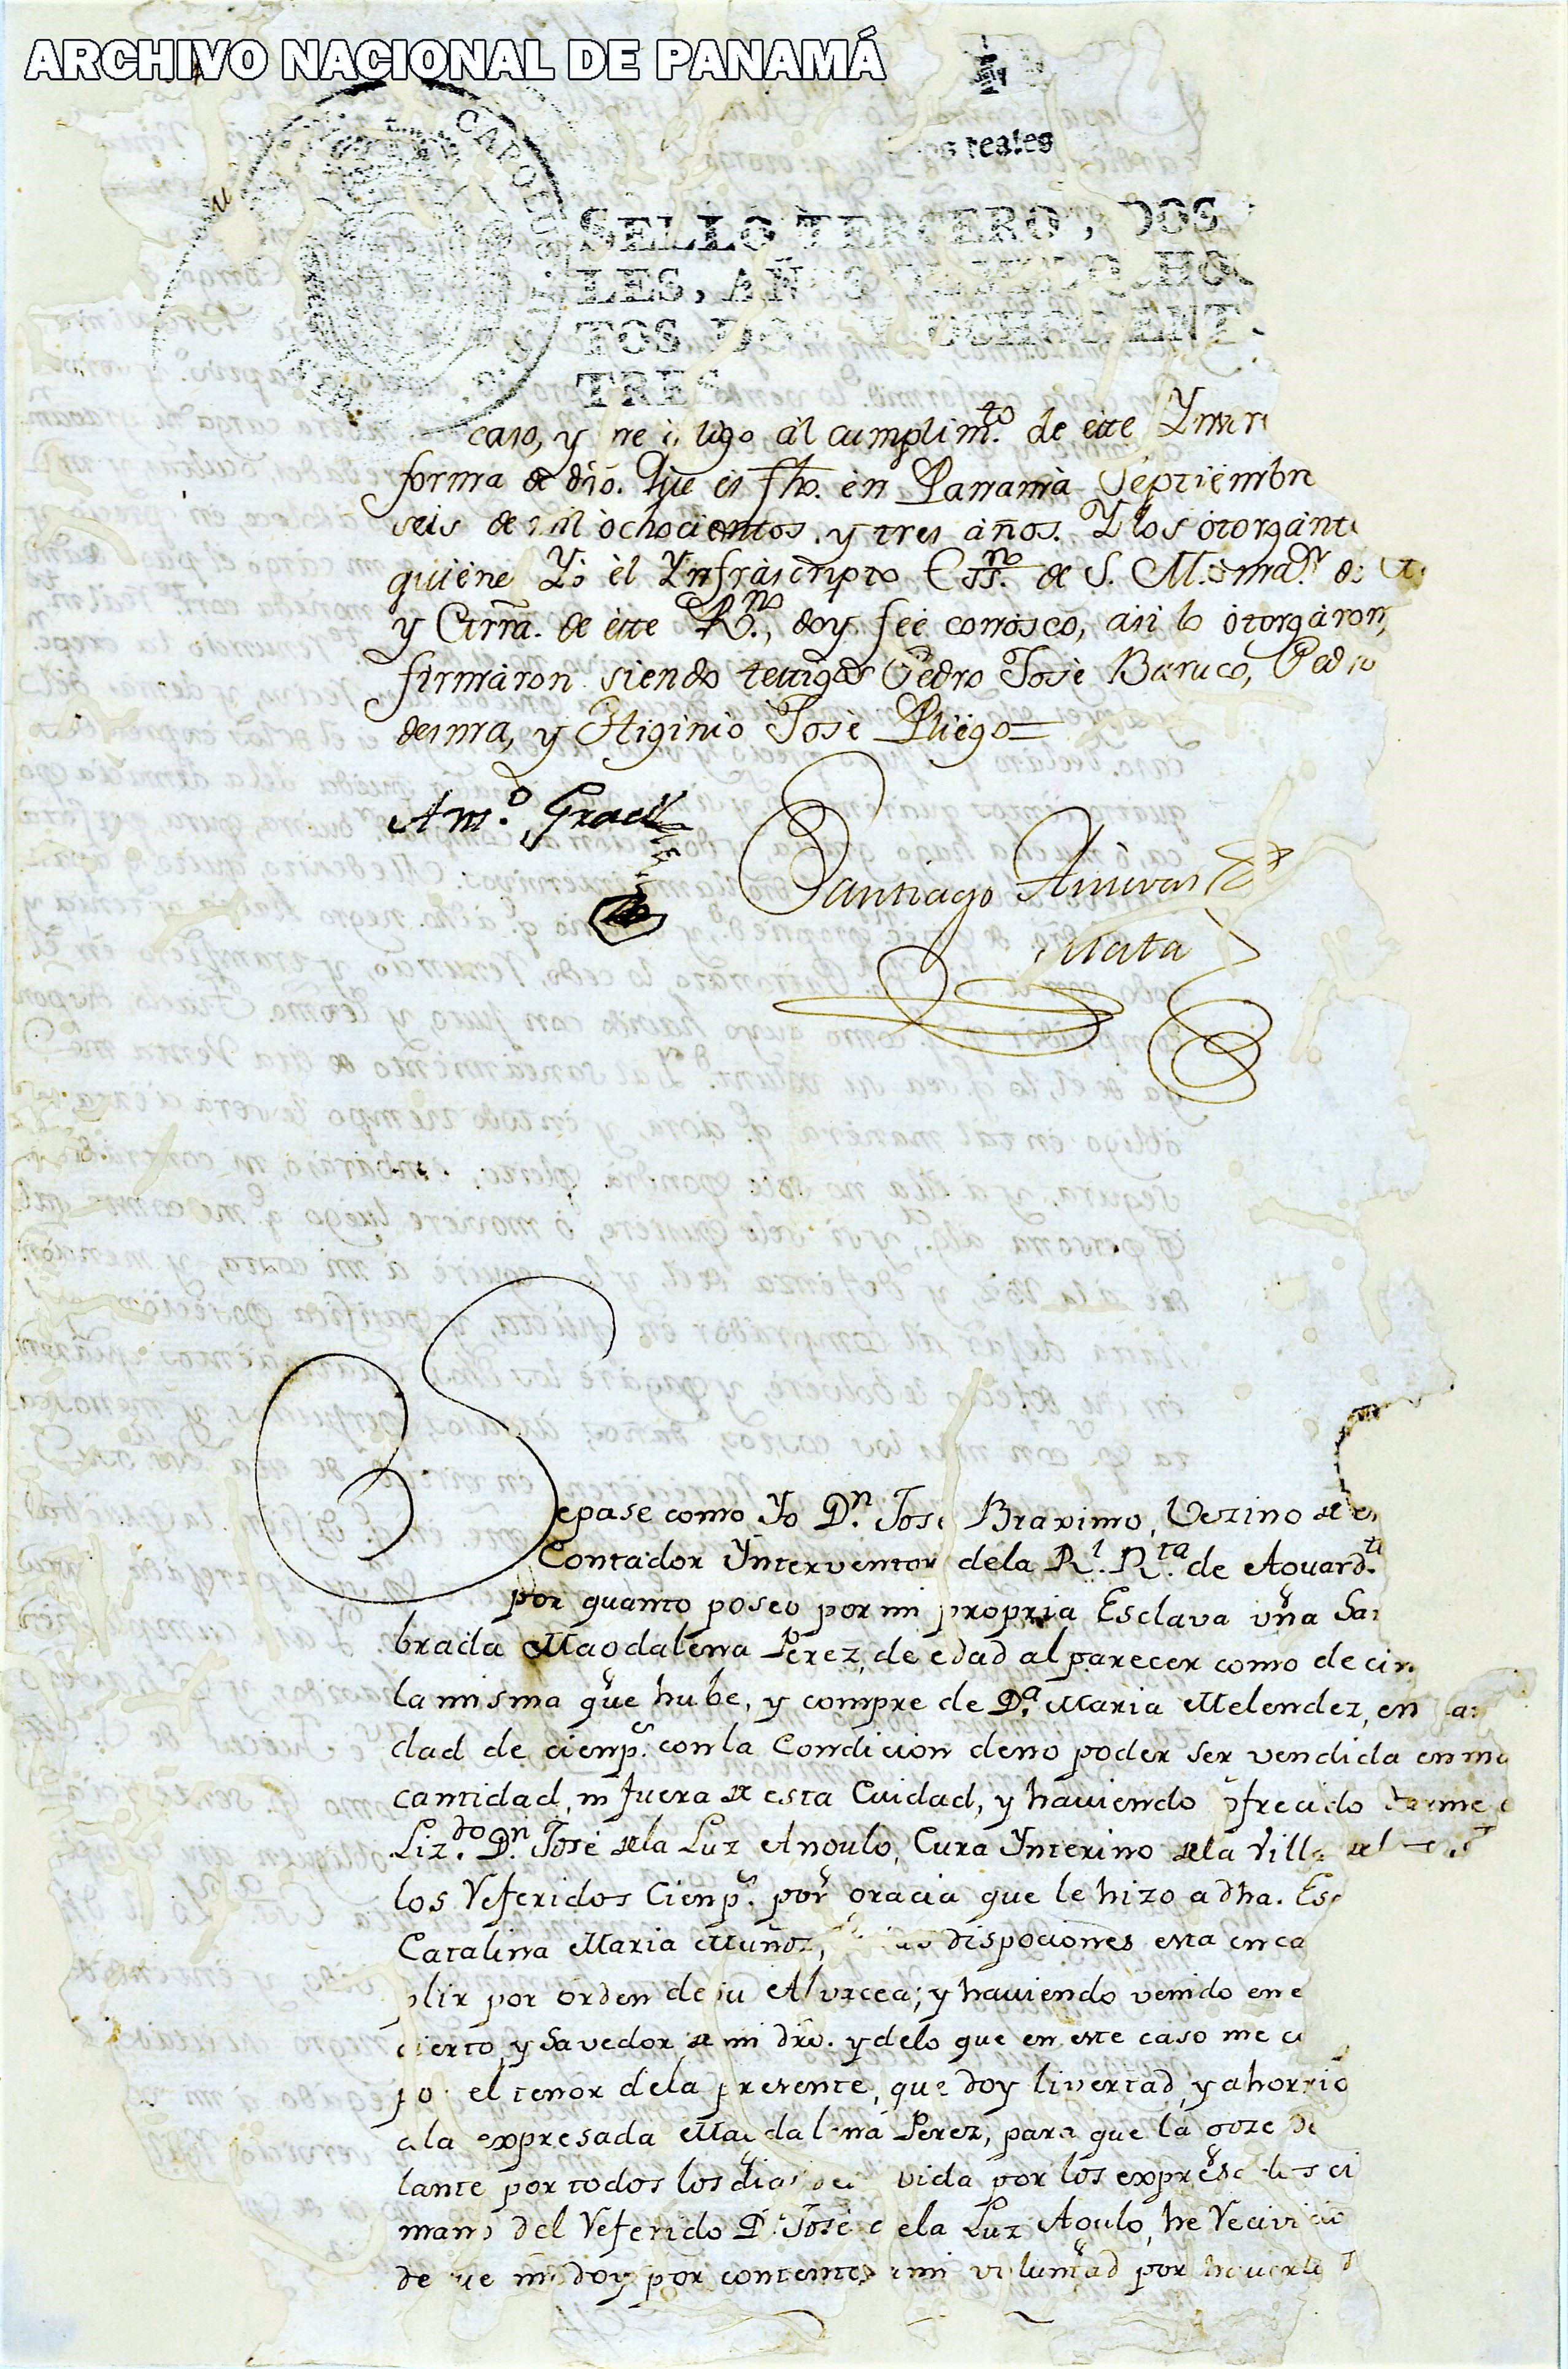 ARCHIVO NACIONAL DE PANAMÁ
os reales
CAROLUS
SELLO TERCERO, DOS
LES, AÑOS
TOS DOS Y OCHOCIENT
TRES
caso, y me obligo al cumplim.to de este
forma de dro. Que es fho. en Panamà Septiembre
seis de mil ochocientos y tres años. Y los otorgante
quiene Yo èl Ynfràscripto Ess.no de S. M.
y de este R.no, doy feè conosco, asi lo otorgàron,
firmàron siendo testigos Pedro Josè Barucò, Pedro
desma, y Higinio Josè Pliègo=
Santiago
Mata
Sepase como Yo D.n Jose Braximo, Vezino de es
Contador Ynterventor dela R.l R.ta de Aguard.te
por quanto poseo por mi propria Esclava vña Sa
brada Magdalena Perez, de edad al parecer como de cin
la misma que hube, y compre de D.a Maria Melendez, en
dad de cienp.s con la Condicion de no poder ser vendida en ma
cantidad, ni fuera de esta Cuidad, y haviendo ofrecido darme
Liz.do D.n José dela Luz Angulo, Cura Ynterino dela Villa del
los Referidos Cienp.s por gracia que le hizo a dha. Es
Catalina Maria Muñoz, disposiciones esta enca
plir por orden de su Alvacea; y haviendo venido en e
cierto, y Savedor de mi dro. y delo que en este caso me co
por el tenor dela presente, que doy livertad, y ahorrio
ala expresada Magdalena Perez, para que la goze de
lante por todos los dias de vida por los expresados ci
mano del Referido D.n José dela Luz Agulo, he Recivido
de que me doy por contento a mi voluntad por haverlo